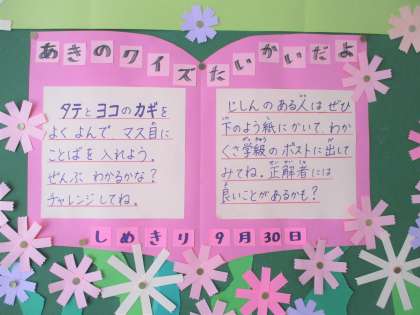 あきのクイズたいかいだよ
タテとヨコのカギを
よくよんで、マス目に
ことばを入れよう。
ぜんぶ わかるかな?
チャレンジしてね。
じしんのある人はぜひ
下のよう紙にかいて、わか
くさ学級のポストに出して
みてね。正解者には
良いことがあるかも?
しめきり 9月30日